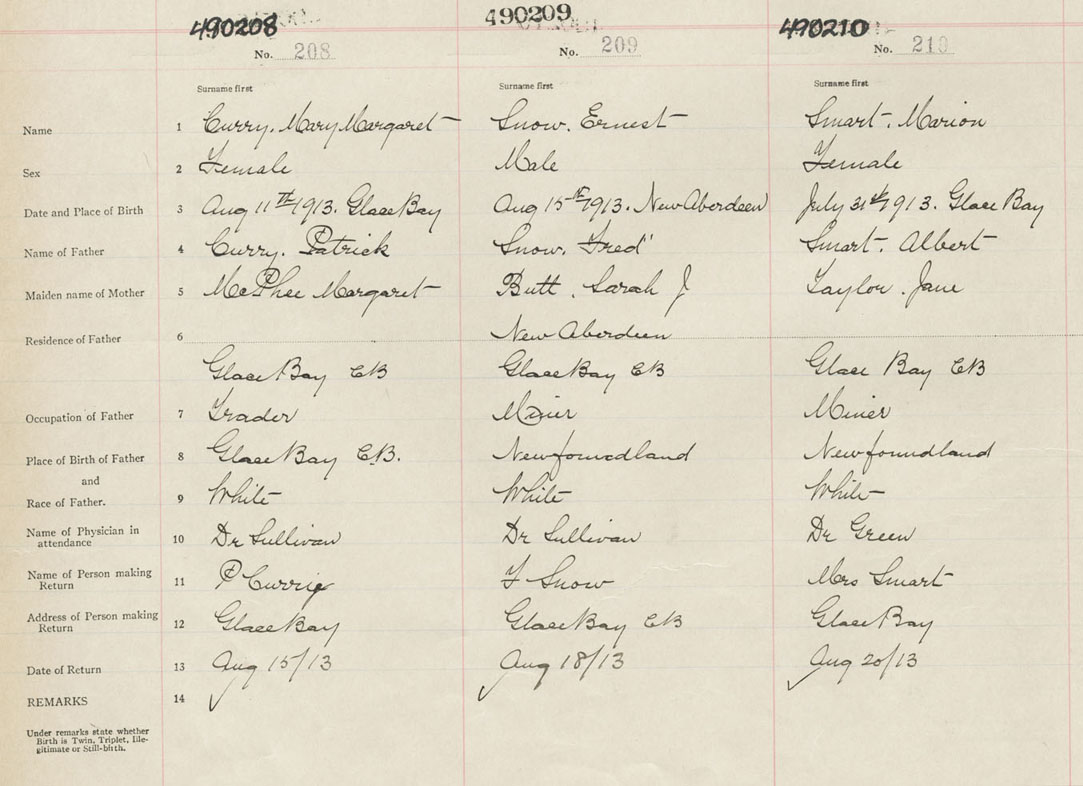 490208 490209 490210
No. 208 No. 209 No. 210
Surname first Surname first Surname first
Name 1 Curry. Mary Margaret Snow. Ernest Smart. Marion
Sex 2 Female Male Female
Date and Place of Birth 3 Aug 11th 1913. Glace Bay Aug 15th 1913. New Aberdeen July 31st 1913. Glace Bay
Name of Father 4 Curry. Patrick Snow. Fred' Smart. Albert
Maiden name of Mother 5 McPhee Margaret Butt. Sarah J Taylor. Jane
Residence of Father 6 New Aberdeen
Glace Bay CB Glace Bay CB Glace Bay CB
Occupation of Father 7 Trader Miner Miner
Place of Birth of Father 8 Glace Bay C.B. Newfoundland Newfoundland
and
Race of Father. 9 White White White
Name of Physician in
attendance 10 Dr Sullivan Dr Sullivan Dr Green
Name of Person making
Return 11 P Currie F Snow Mrs Smart
Address of Person making
Return 12 Glace Bay Glace Bay CB Glace Bay
Date of Return 13 Aug 15/13 Aug 18/13 Aug 20/13
REMARKS 14
Under remarks state whether
Birth is Twin, Triplet, Ille-
gitimate or Still-birth.